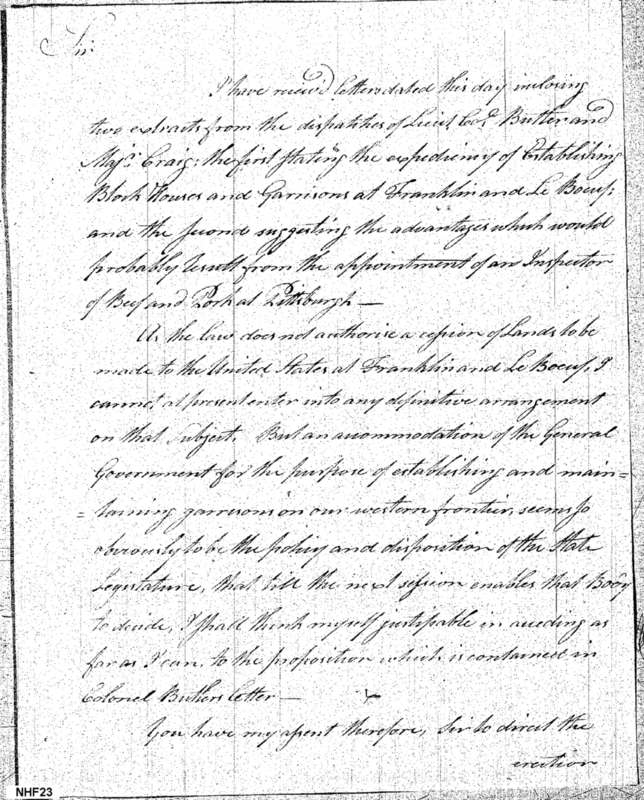 Sir:
I have receiv'd letters dated this day inclosing
two extracts from the dispatches of Lieut. Col. Butler and
Majr. Craig: the first stating the expediency of Establishing
Block Houses and Garrisons at Franklin and Le Boeuf;
and the second suggesting the advantages which would
probably result from the appointment of an Inspector
of Beef and Pork at Pittsburgh —
As the law does not authorise a cession of Lands to be
made to the United States at Franklin and Le Boeuf, I
cannot at present enter into any definitive arrangement
on that Subject. But an accommodation of the General
Government for the purpose of establishing and main=
=taining garrisons on our western frontier, seems so
obviously to be the policy and disposition of the State
Legislature, that till the next session enables that Body
to decide, I shall think myself justifiable in acceding as
far as I can, to the proposition which is contained in
Colonel Butlers letter —
You have my assent therefore, Sir to direct the
erection
NHF23